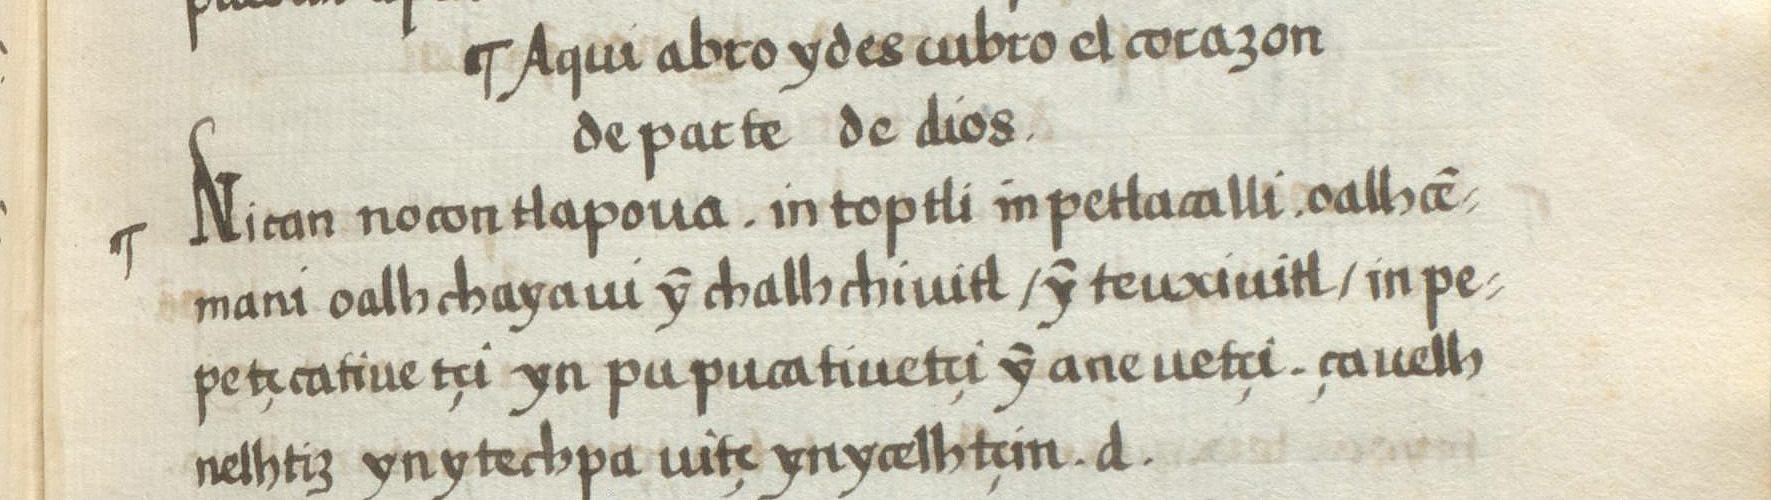 ¶ Aqui abro ydes cubro el corazon
de parte de dios.
¶ Nican nocon tlapoua. in toptli in petlacalli. oalh cē-
mani oalh chayaui ȳ chalh chiuitl / ȳ teuxiuitl / in pe-
petçcatiue tçi yn pu pucatiuetçi ȳ ane uetçi. ça uelh
nelhtiz yn ytechpa uitç ynycelhtçin. d.